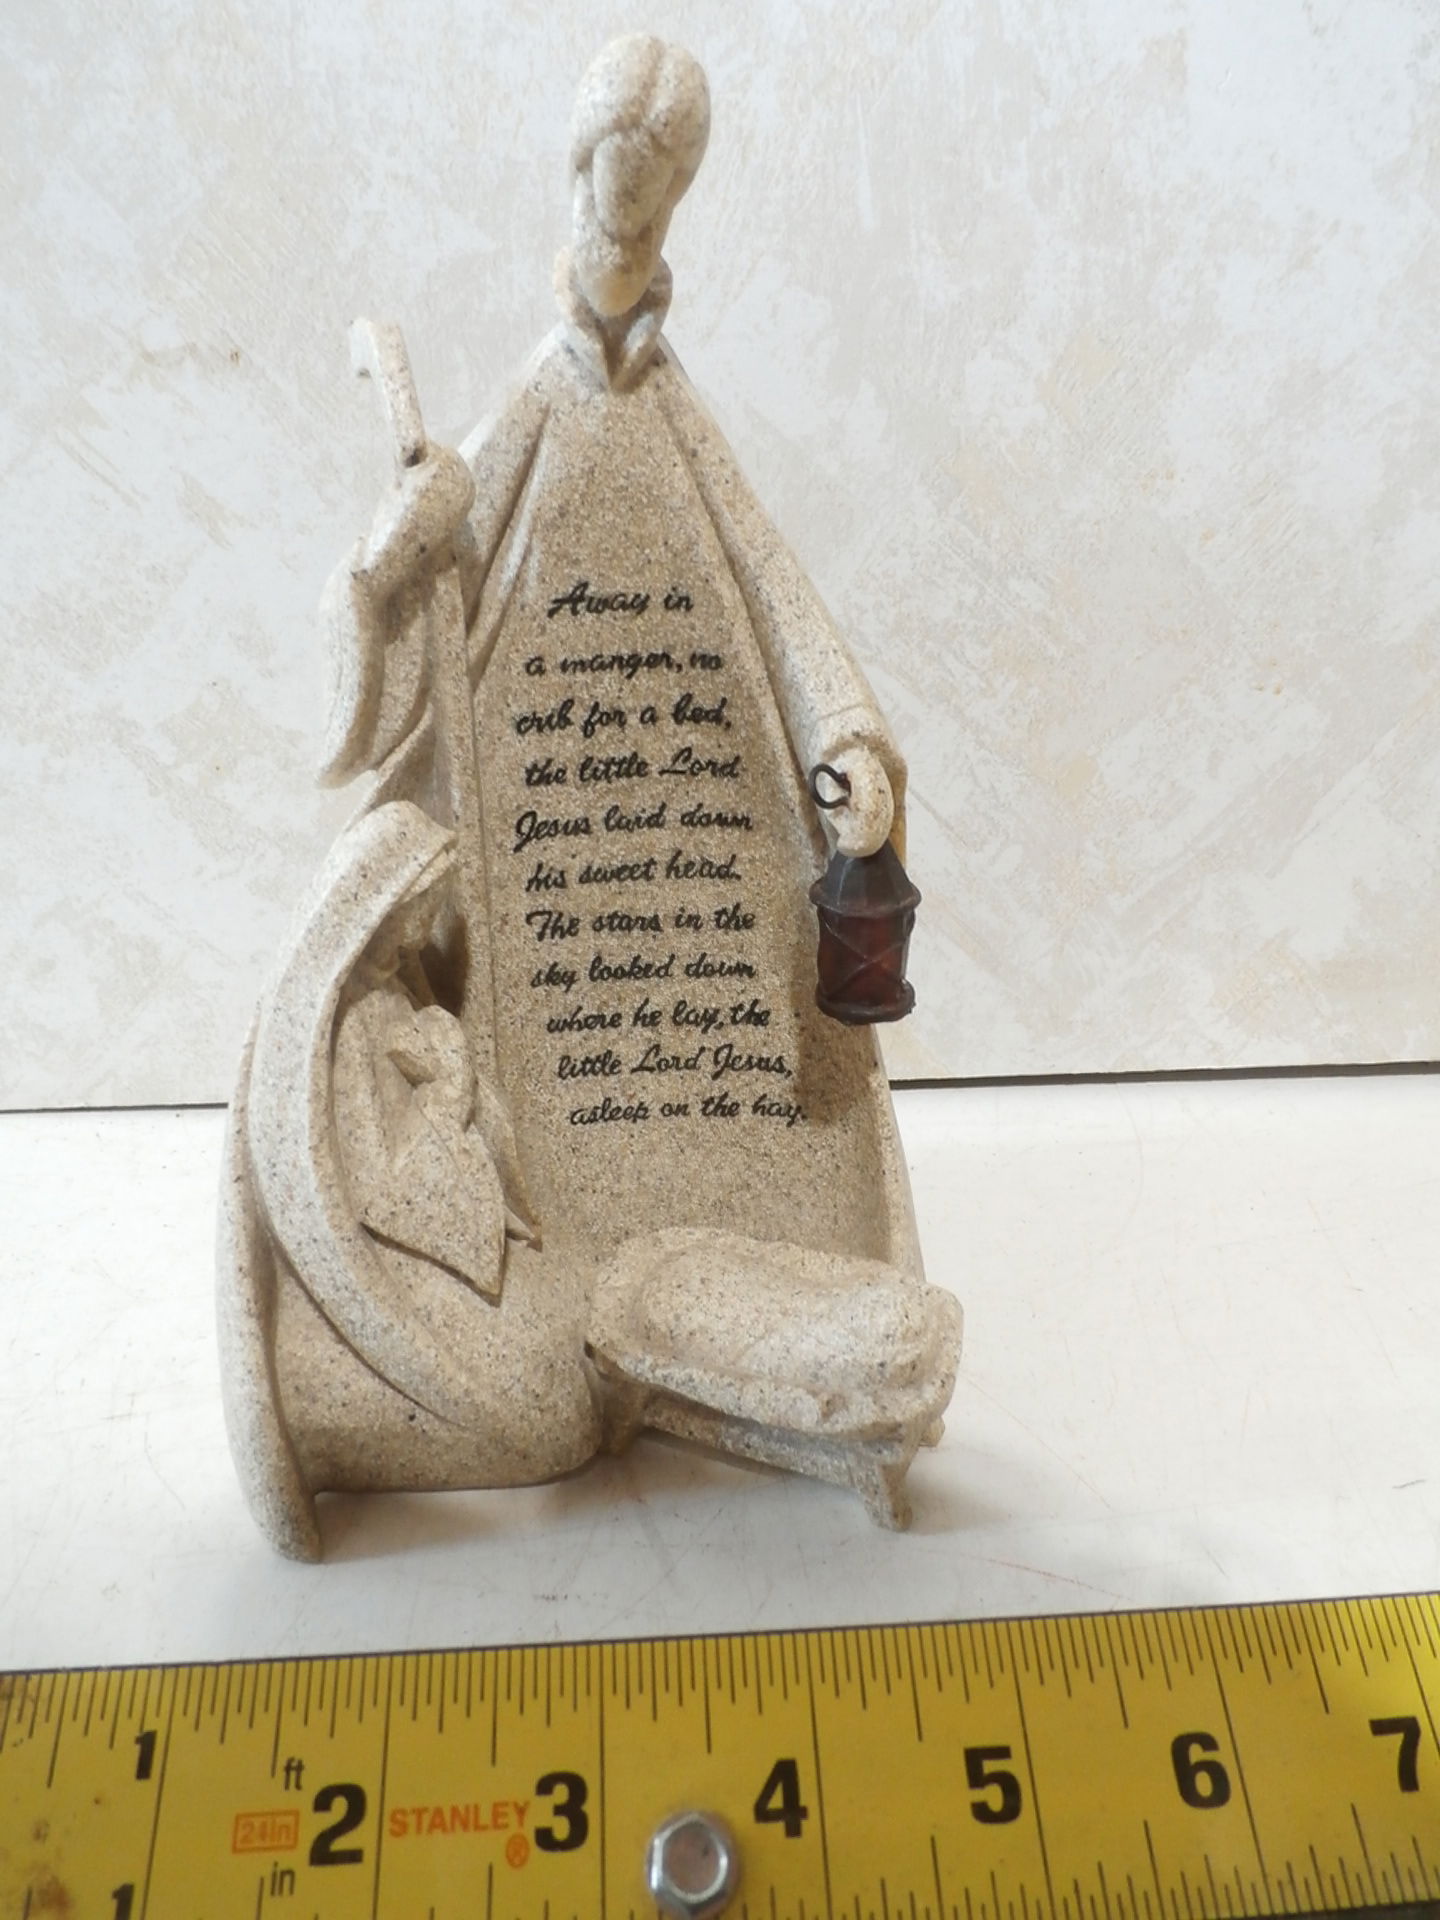 Away in
a manger, no
crib for a bed,
the little Lord
Jesus laid down
his sweet head.
The stars in the
sky looked down
where he lay, the
little Lord Jesus,
asleep on the hay.
1 ft 2 3 4 5 6 7
24in STANLEY ®
in
1